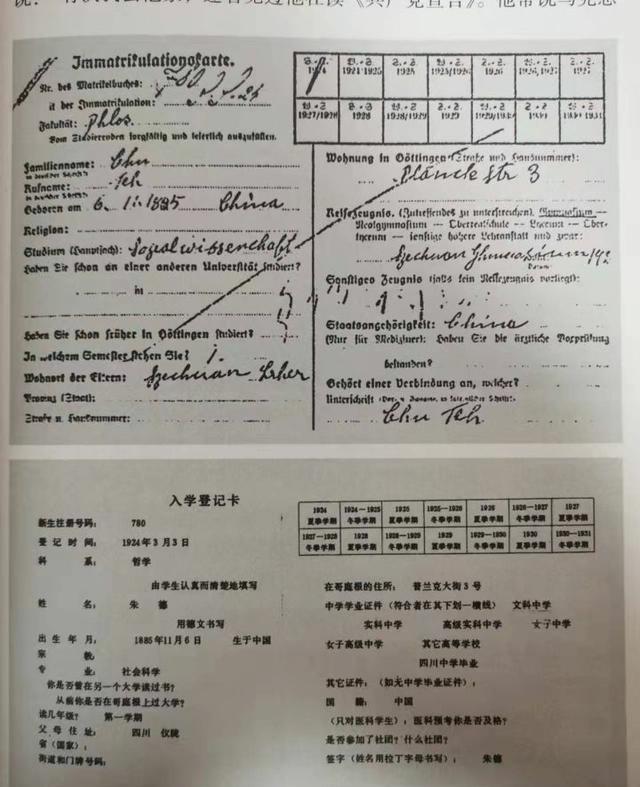 Immatrikulationskarte.
Nr. des Matrikelbuches:
Fakultät: Phlos.
Vom Studierenden sorgfältig und leserlich auszufüllen.
Familienname: Chu
Rufname: Teh
Geboren am 6. 1. 1895 China
Religion:
Studium (Hauptfach): Sozialwissenschaft
Haben Sie schon an einer anderen Universität studiert?
in
Haben Sie schon früher in Göttingen studiert?
In welchem Semester stehen Sie? 1.
Wohnort der Eltern: Szechuan
Provinz (Staat):
Straße u. Hausnummer:
1924 1924/1925 1925 1925/1926 1926 1926/1927 1927
1927/1928 1928 1928/1929 1929 1929/1930 1930 1930/1931
Wohnung in Göttingen (Straße und Hausnummer):
Planckstr 3
Reifezeugnis. (Zutreffendes zu unterstreichen). Gymnasium —
Realgymnasium — Oberrealschule — Lyzeum — Ober-
lyzeum — sonstige höhere Lehranstalt und zwar:
Szechuan
Sonstiges Zeugnis (falls kein Reifezeugnis vorliegt):
Staatsangehörigkeit: China
(Nur für Mediziner): Haben Sie die ärztliche Vorprüfung
bestanden?
Gehört einer Verbindung an, welcher?
Unterschrift
Chu Teh
入学登记卡
新生注册号码： 780
登记时间： 1924年3月3日
科系： 哲学
由学生认真而清楚地填写
姓名： 朱德
用德文书写
出生年月： 1885年11月6日 生于中国
宗教
专业： 社会科学
你是否曾在另一个大学读过书？
从前你是否在哥庭根上过大学？
读几年级？ 第一学期
父母住址： 四川 仪陇
省（国家）：
街道和门牌号码：
1924 夏季学期 1924—1925 冬季学期 1925 夏季学期 1925—1926 冬季学期 1926 夏季学期 1926—1927 冬季学期 1927 夏季学期
1927—1928 冬季学期 1928 夏季学期 1928—1929 冬季学期 1929 夏季学期 1929—1930 冬季学期 1930 夏季学期 1930—1931 冬季学期
在哥庭根的住所： 普兰克大街3号
中学学业证件（符合者在其下划一横线） 文科中学
实科中学 高级实科中学 女子中学
女子高级中学 其它高等学校
四川中学毕业
其它证件：（如无中学毕业证件）：
国籍： 中国
（只对医科学生）：医科预考你是否及格？
是否参加了社团？什么社团？
签字（姓名用拉丁字母书写）： 朱德